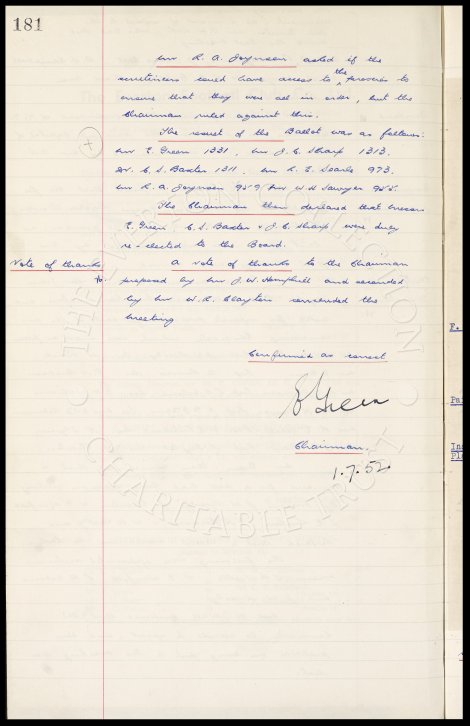 181
Mr R. A. Joynson asked if the
scrutineers could have access to the proxies to
ensure that they were all in order, but the
Chairman ruled against this.
The result of the Ballot was as follows:
Mr E. Green 1331, Mr J. C. Sharp 1313.
Dr. C. S. Baxter 1311. Mr R. E. Searle 973.
Mr R. A. Joynson 959, Mr W. H. Sawyer 955.
The Chairman then declared that Messrs
E. Green C. S. Baxter & J. C. Sharp were duly
re-elected to the Board.
Vote of thanks
A vote of thanks to the Chairman
to.
proposed by Mr J. W. Hemphill and seconded
by Mr W. R. Clayton concluded the
Meeting
Confirmed as correct
E Green
Chairman.
1.7.52.
THE
COLLECTION
CHARITABLE TRUST
F.
Pa
In
Pl